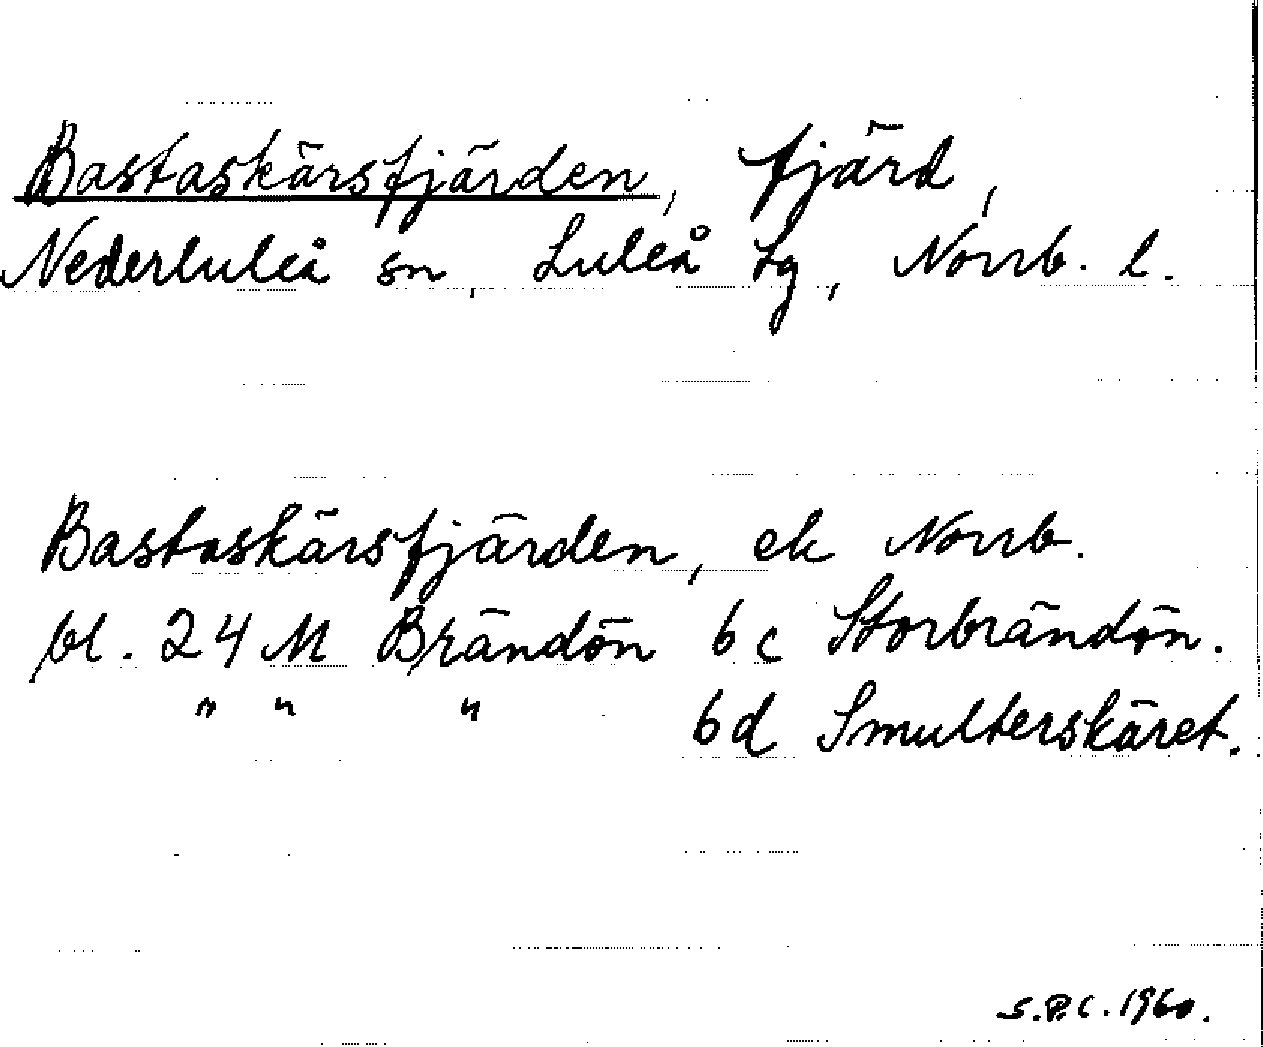 Bastaskärsfjärden, fjärd,
Nederluleå sn, Luleå tg, Norrb. l.
Bastaskärsfjärden, ek Norrb.
bl. 24 M Brändön 6 c Storbrändön.
" " " 6d Smulterskäret.
S.P.C. 1960.